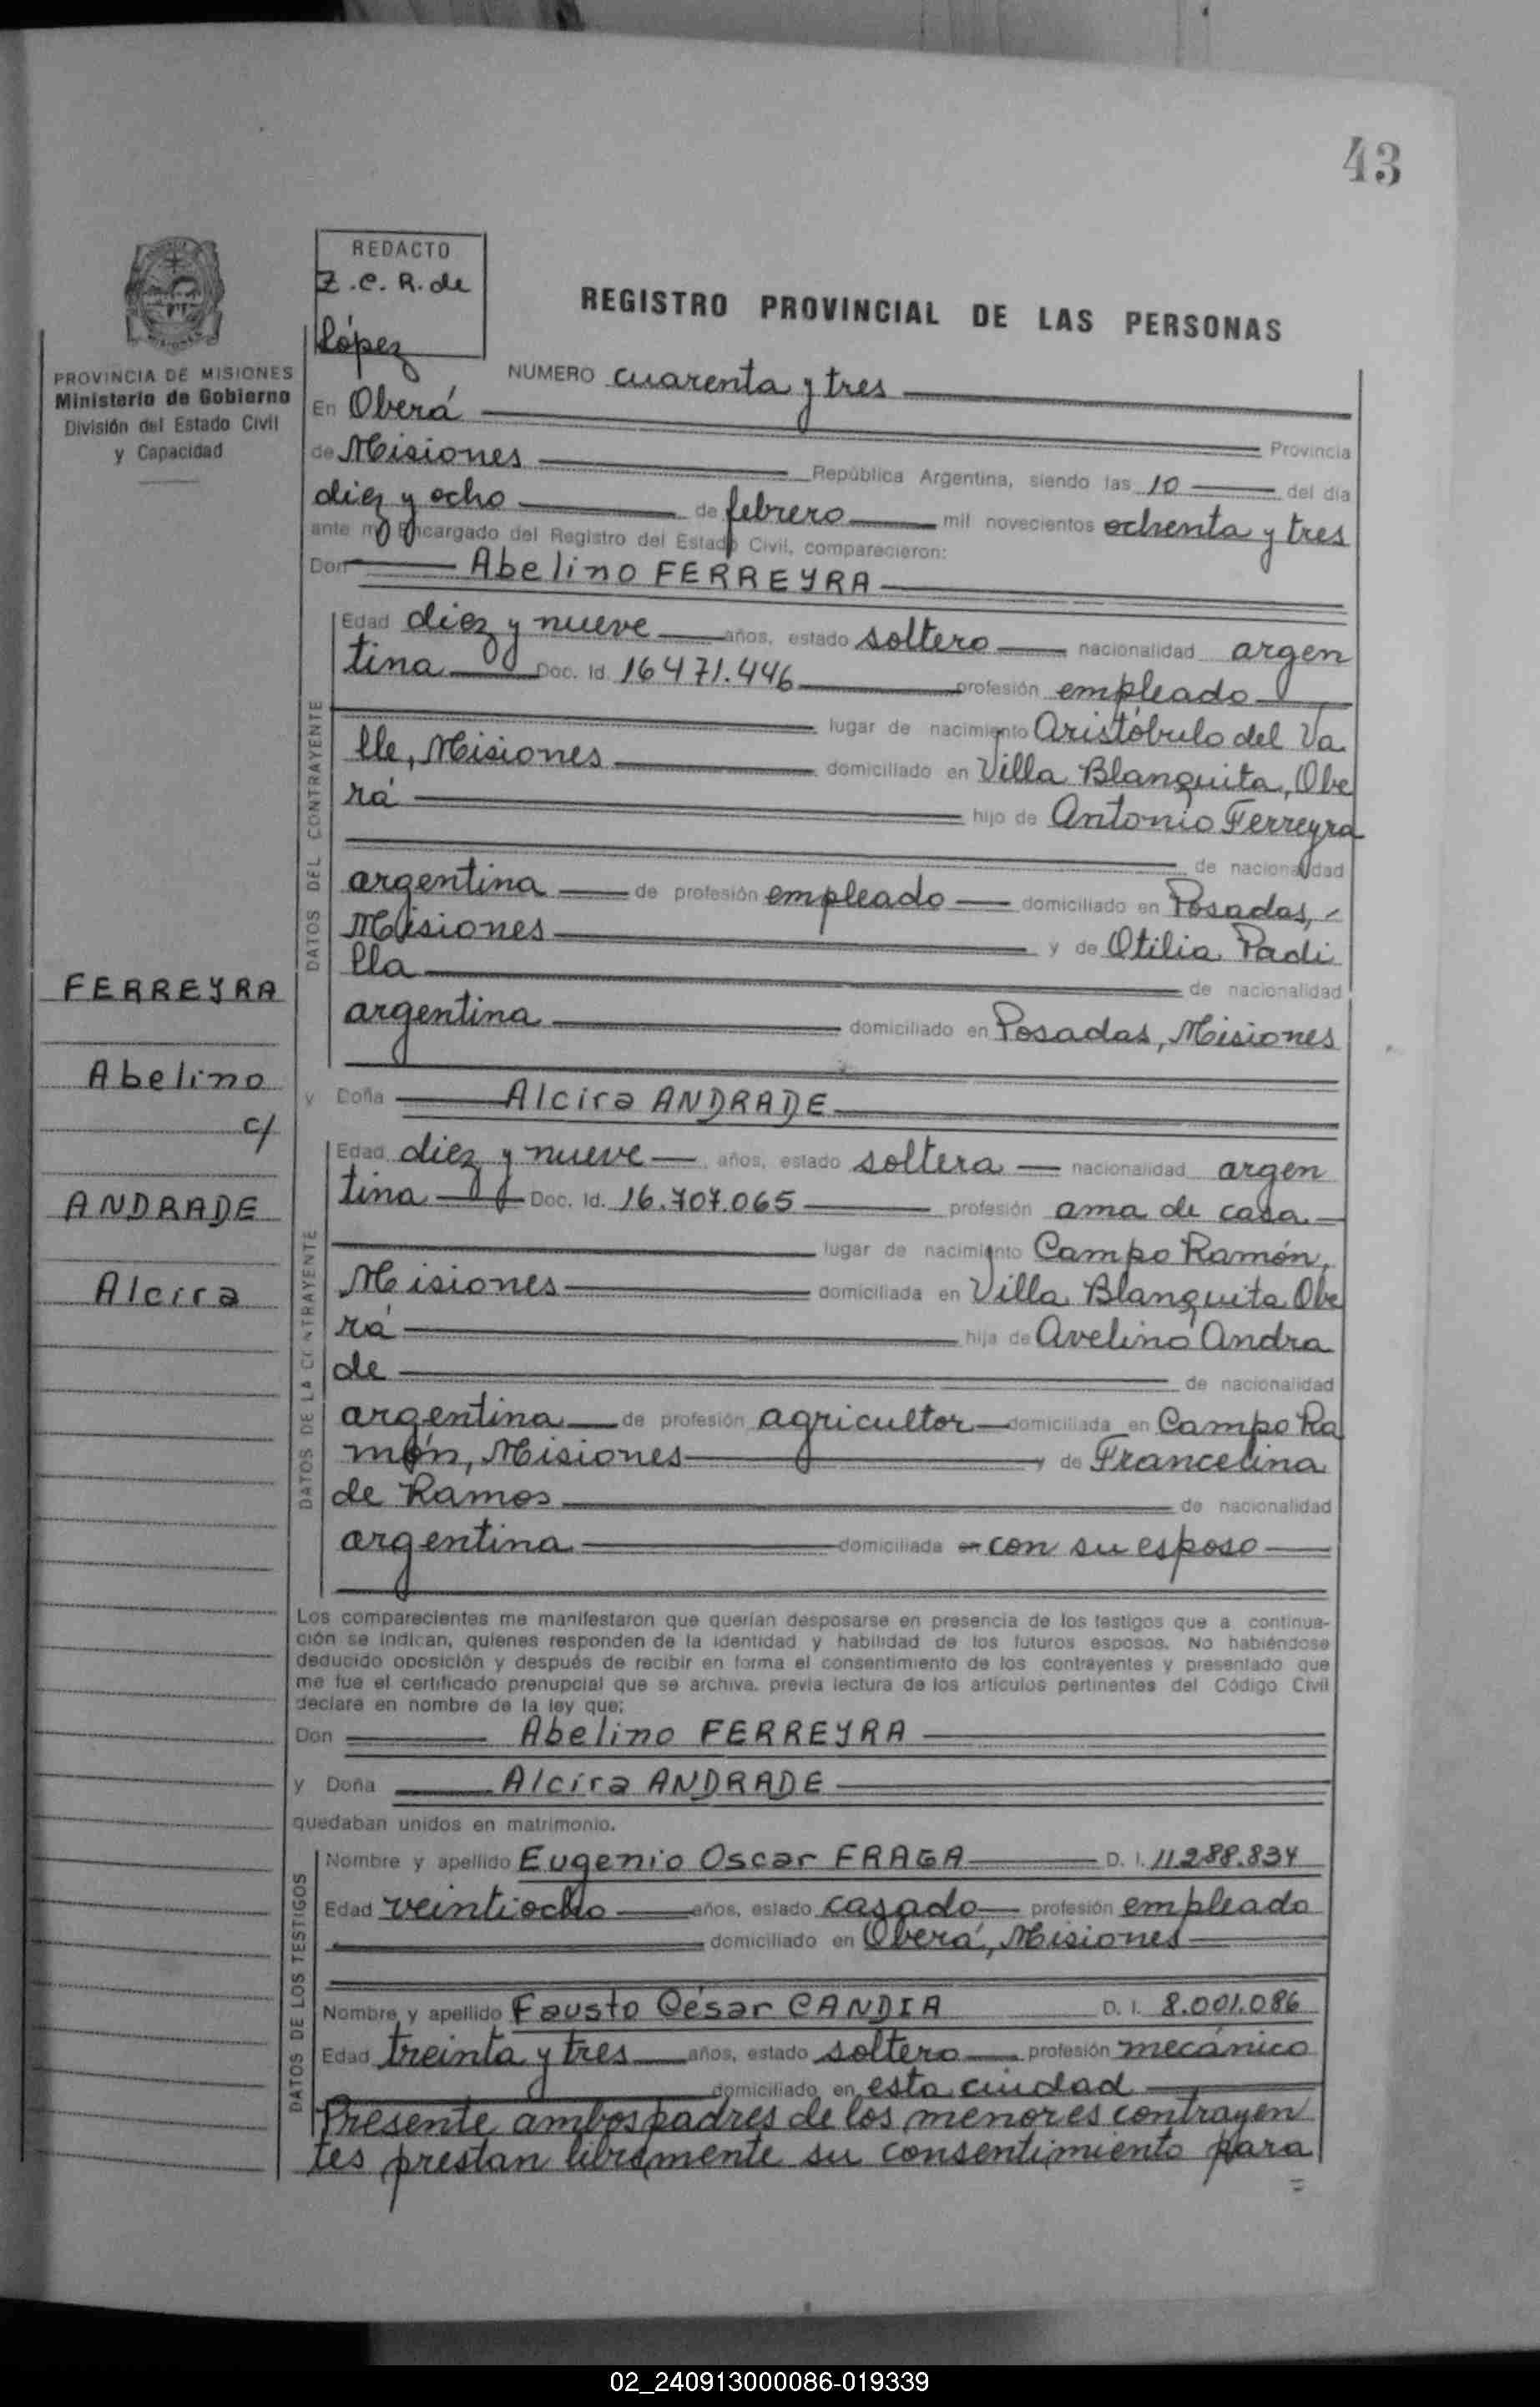 43
REDACTO
Z.C.R. de
López
REGISTRO PROVINCIAL DE LAS PERSONAS
PROVINCIA DE MISIONES
Ministerio de Gobierno
División del Estado Civil
y Capacidad
NUMERO cuarenta y tres
En Oberá Provincia
de Misiones República Argentina, siendo las 10 del día
diez y ocho de febrero mil novecientos ochenta y tres
ante mí Encargado del Registro del Estado Civil, comparecieron:
Don Abelino FERREYRA
DATOS DEL CONTRAYENTE
Edad diez y nueve años, estado soltero nacionalidad argen
tina Doc. Id. 16471.446 profesión empleado
lugar de nacimiento Aristóbulo del Va
lle, Misiones domiciliado en Villa Blanquita, Obe
rá hijo de Antonio Ferreyra
de nacionalidad
argentina de profesión empleado domiciliado en Posadas,
Misiones y de Otilia Padi
lla de nacionalidad
argentina domiciliado en Posadas, Misiones
FERREYRA
Abelino
c/
ANDRADE
Alcira
y Doña Alcira ANDRADE
DATOS DE LA CONTRAYENTE
Edad diez y nueve años, estado soltera nacionalidad argen
tina Doc. Id. 16.707.065 profesión ama de casa
lugar de nacimiento Campo Ramón,
Misiones domiciliada en Villa Blanquita Obe
rá hija de Avelino Andra
de de nacionalidad
argentina de profesión agricultor domiciliada en Campo Ra
món, Misiones y de Francelina
de Ramos de nacionalidad
argentina domiciliada en con su esposo
Los comparecientes me manifestaron que querían desposarse en presencia de los testigos que a continua-
ción se indican, quienes responden de la identidad y habilidad de los futuros esposos. No habiéndose
deducido oposición y después de recibir en forma el consentimiento de los contrayentes y presentado que
me fue el certificado prenupcial que se archiva, previa lectura de los artículos pertinentes del Código Civil
declare en nombre de la ley que:
Don Abelino FERREYRA
y Doña Alcira ANDRADE
quedaban unidos en matrimonio.
DATOS DE LOS TESTIGOS
Nombre y apellido Eugenio Oscar FRAGA D. I. 11288.834
Edad veintiocho años, estado casado profesión empleado
domiciliado en Oberá, Misiones
Nombre y apellido Fausto César CANDIA D. I. 8.001.086
Edad treinta y tres años, estado soltero profesión mecánico
domiciliado en esta ciudad
Presente ambos padres de los menores contrayen
tes prestan libremente su consentimiento para
=
02_240913000086-019339